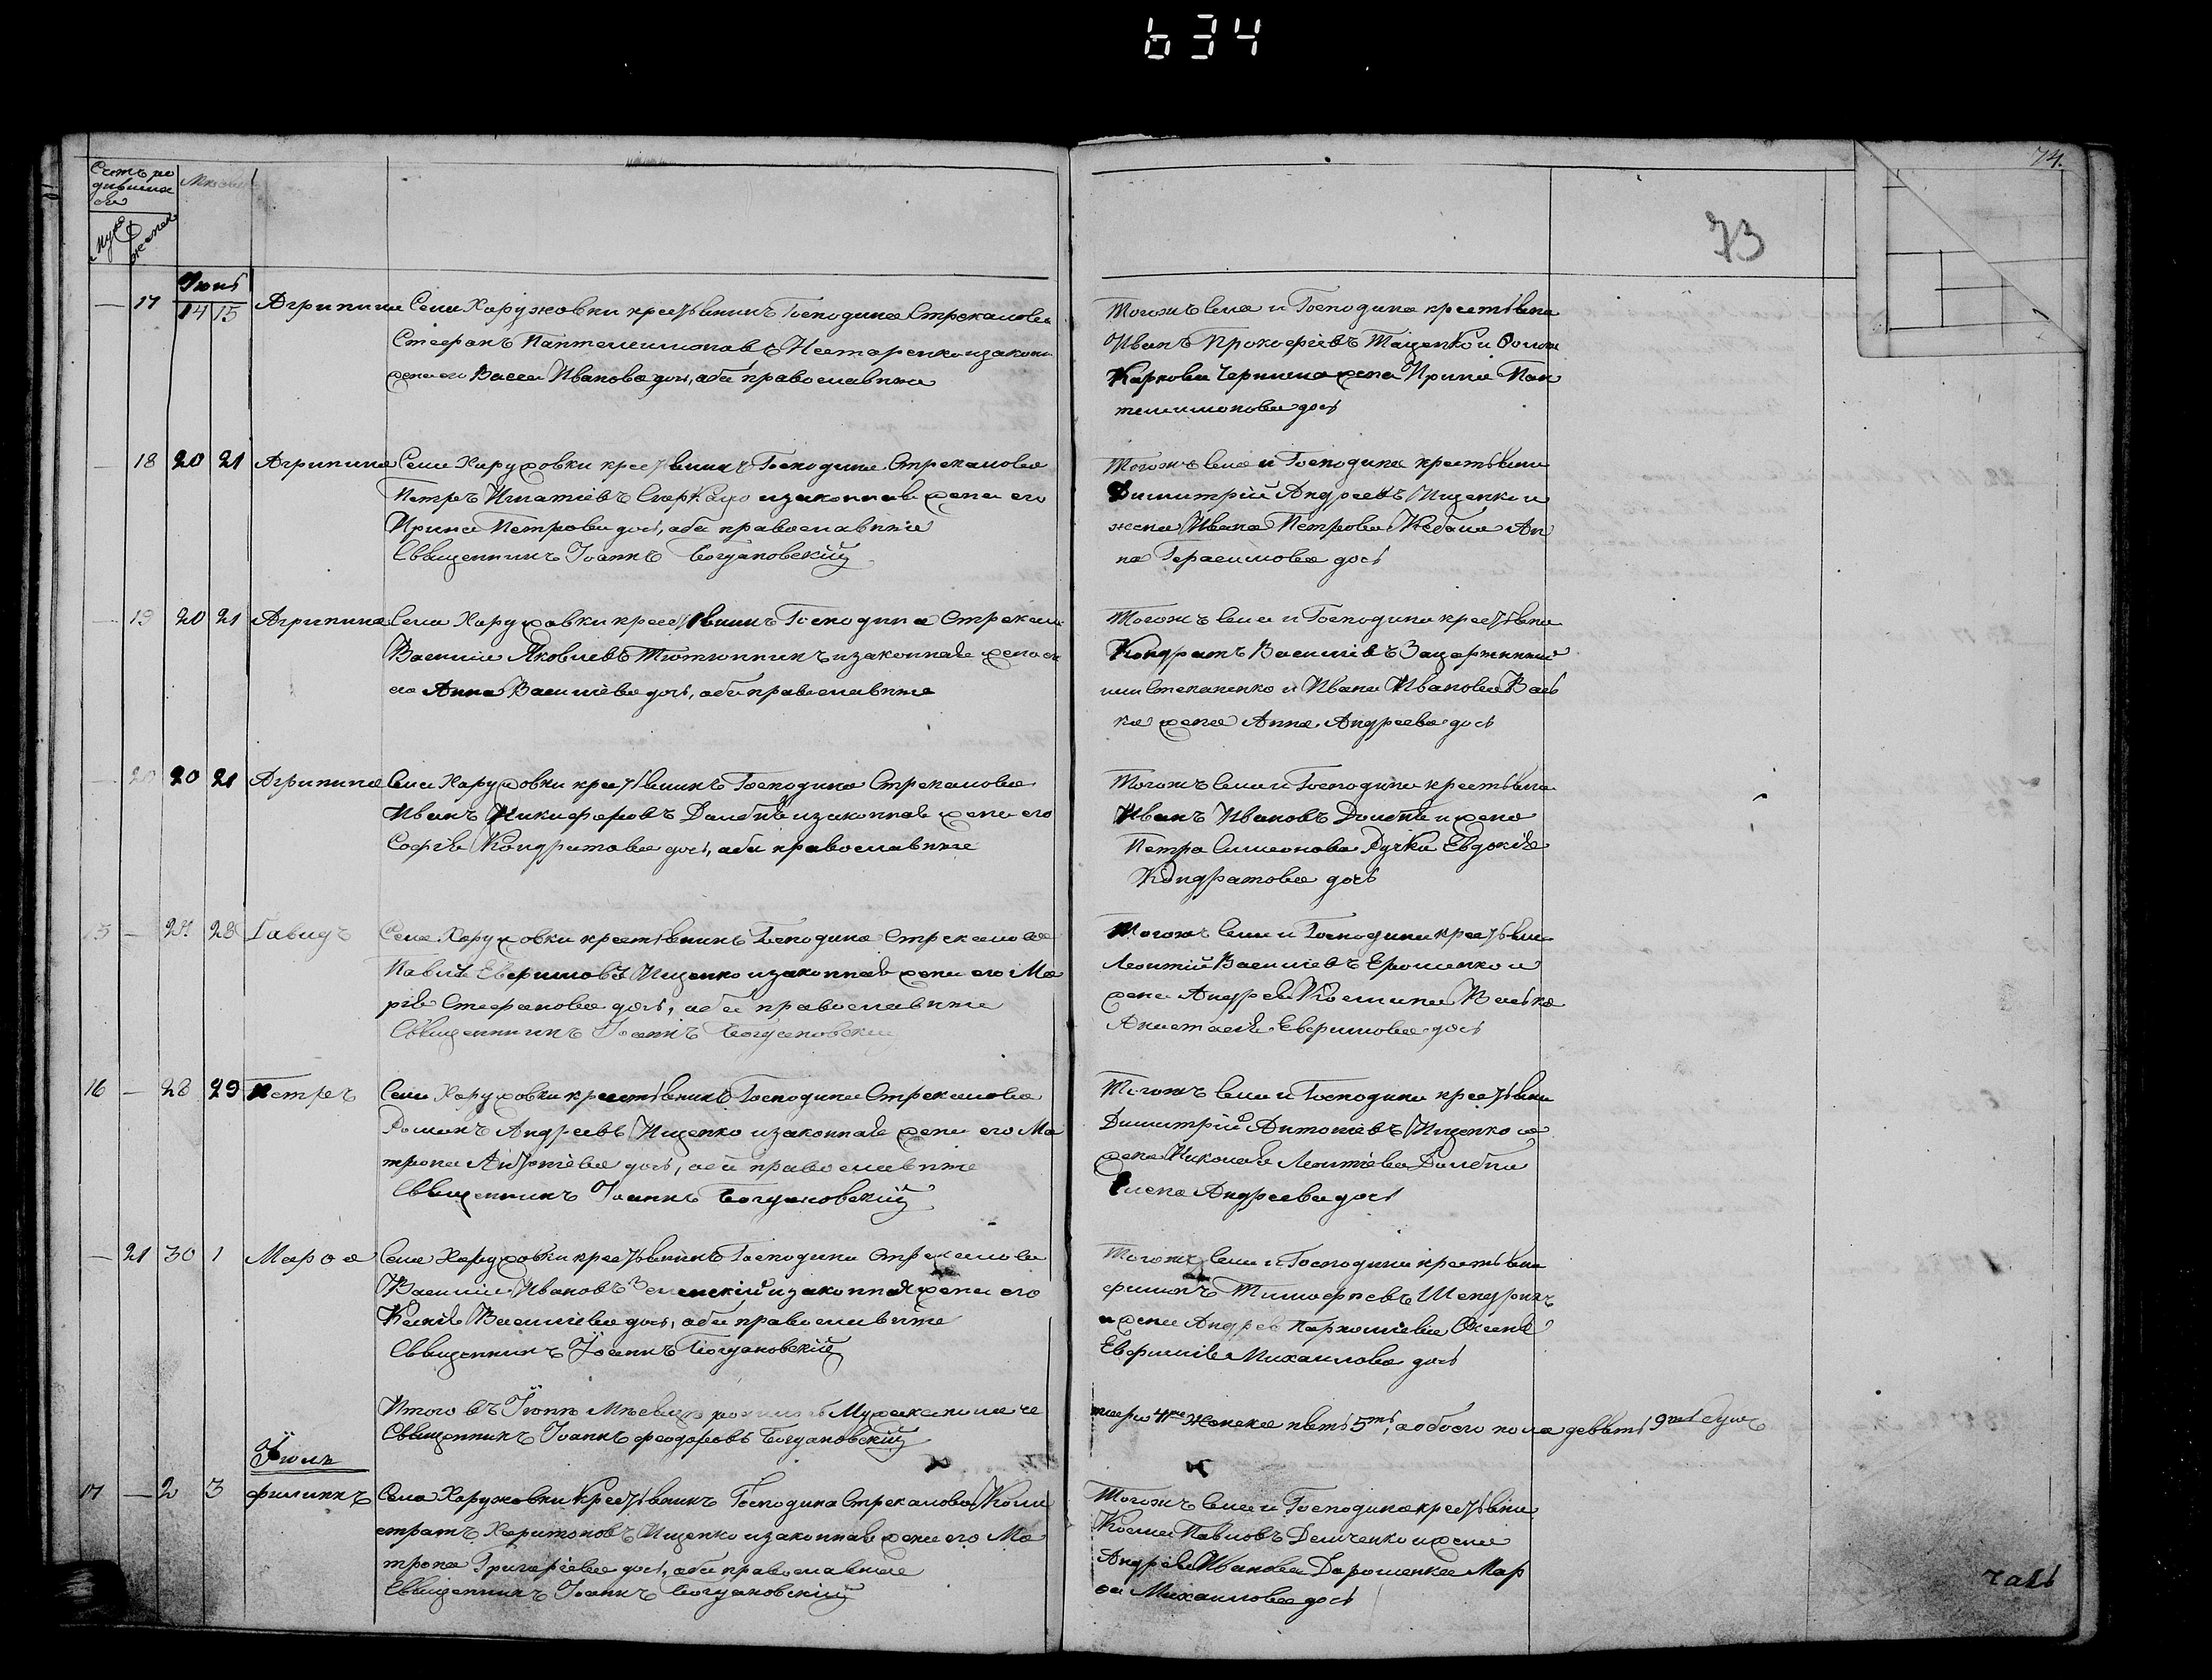 634
74.
73
Счетъ ро
дивших
ся
Муж
женск
Іюнь
17 14 15 Агрипина Села Харужовки крестьянинъ Господина Стрекалова
Стефанъ Пантелеимоновъ Нестаренко изаконн
жена его Васса Иванова дочь, оба православные
Тогожъ села и Господина крестьяне
Иванъ Прокофіевъ Таценко и Фомы
Карпова жена Ирина Пан
телимонова дочь
18 20 21 Агрипина Села Харужовки крестьянинъ Господина Стрекалова
Петръ Игнатіевъ изаконная жена его
Ирина Петрова дочь, оба православные
Священникъ Іоаннъ Богдановскій
Тогожъ села и Господина крестьяне
Димитрій Андреевъ Ищенко и
жена Ивана Петрова Ан
на Герасимова дочь
19 20 21 Агрипина Села Харужовки крестьянинъ Господина Стрекал
Василій Яковлевъ Тютюнникъ изаконная жена
его Анна Васильева дочь, оба православные
Тогожъ села и Господина крестьяне
Кондратъ Васильевъ
или Степаненко и Ивана Иванова Вась
ка жена Анна Андреева дочь
20 20 21 Агрипина Села Харужовки крестьянинъ Господина Стрекалова
Иванъ Никифоровъ Долбня изаконная жена его
Софія Кондратова дочь, оба православные
Тогожъ села и Господина крестьяне
Иванъ Ивановъ Долбня и жена
Петра Симеонова Ручки Евдокія
Кондратова дочь
15 — 27 28 Давидъ Села Харужовки крестьянинъ Господина Стрекалова
Павелъ Евфимовъ Ищенко изаконная жена его Ма
рія Стефанова дочь, оба православные
Священникъ Іоаннъ Богдановскій
Тогожъ села и Господина крестьяне
Леонтій Васильевъ Ерошенко и
жена Андрея Козмина Васька
Анастасія Евфимова дочь
16 — 28 29 Петръ Села Харужовки крестьянинъ Господина Стрекалова
Романъ Андреевъ Ищенко изаконная жена его Ма
трона дочь, оба православные
Священникъ Іоаннъ Богдановскій
Тогожъ села и Господина крестьяне
Димитрій Антоніевъ Ищенко и
жена Николая Леонтіева Долбни
Елена Андреева дочь
— 21 30 1 Марѳа Села Харужовки крестьянинъ Господина Стрекалова
Василій Ивановъ Зеленскій изаконная жена его
Ксенія Васильева дочь, оба православные
Священникъ Іоаннъ Богдановскій
Тогожъ села и Господина крестьяне
Филипъ Тимофеевъ Шендрикъ
и жена Андрея
Евфимія Михаилова дочь
Итого въ Іюнѣ Мѣсяцѣ родилось Мужска пола че
тыре 4ре женска пять 5ть, а обоего пола девять 9ть душъ
Священникъ Іоаннъ Феодоровъ Богдановскій
Іюль
17 — 2 3 Филиппъ Села Харужовки крестьянинъ Господина Стрекалова Кали
стратъ Харитоновъ Ищенко изаконная жена его Ма
трона Григорьева дочь, оба православные
Священникъ Іоаннъ Богдановскій
Тогожъ села и Господина крестьяне
Козма Павловъ Демченко и жена
Андрея Иванова Дорошенка Мар
ѳа Михаилова дочь
часть